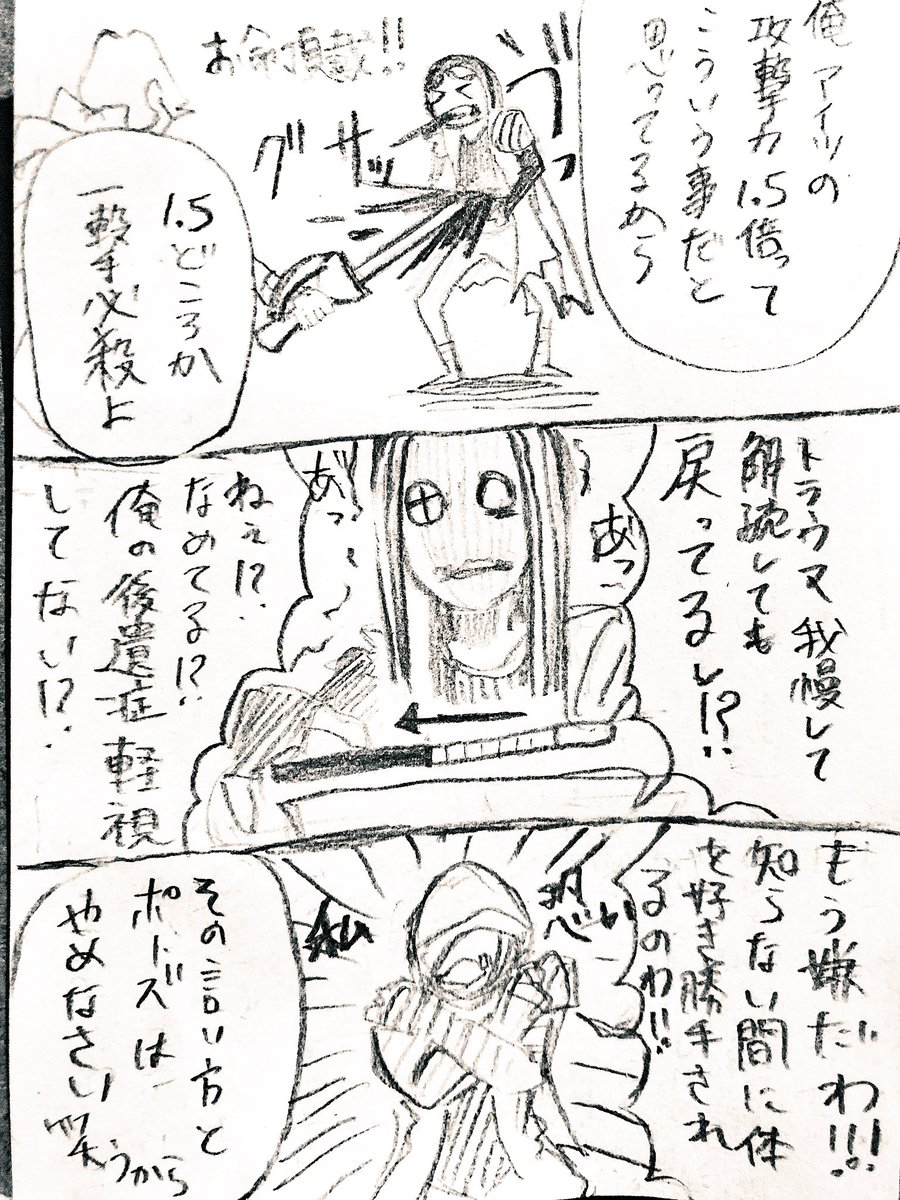 俺アイツの
攻撃力1.5倍って
こういう事だと
思ってるから
お命頂戴!!
グサッ
ブッ
1.5どころか
一撃必殺よ
トラウマ我慢して
解読しても
戻ってるし!?
あっ〜
あっ
ねぇ!?
なめてる!?
俺の後遺症軽視
してない!?
もう嫌だわ!!!
知らない間に体
を好き勝手され
るのわ!!
恐い
私
その言い方と
ポーズは
やめなさい
うから